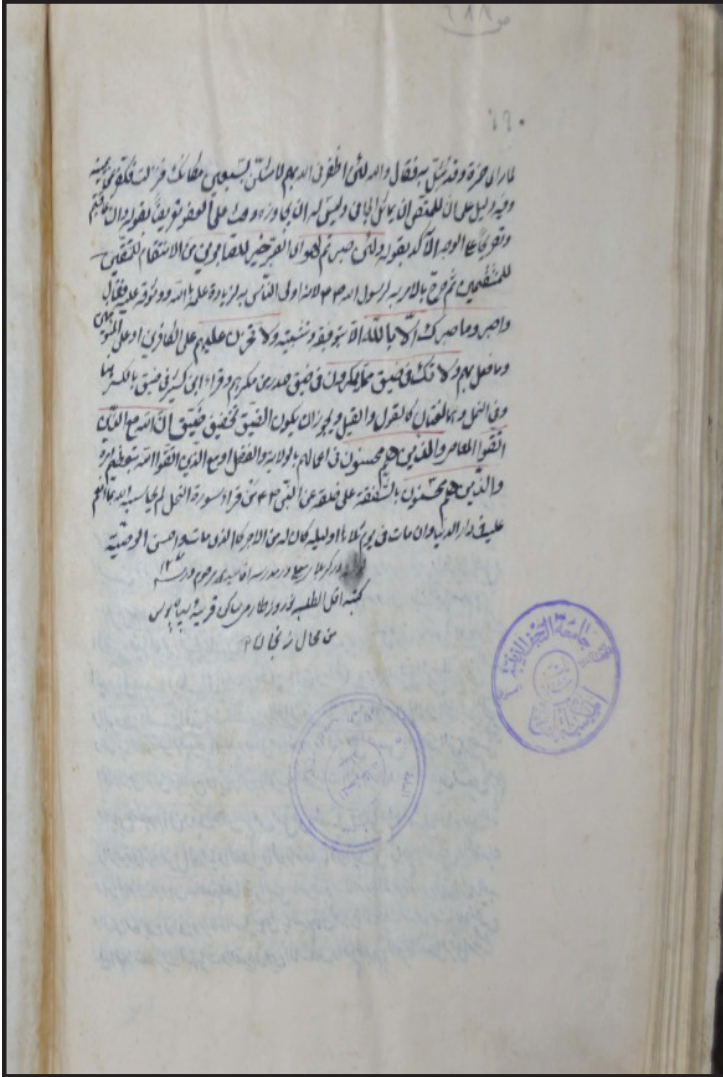 ص ٦٨٨
٦٩٠
لما رأى حمزة وقد مثل به فقال والله لئن اظفرني الله بهم لامثلن بسبعين مكانك فنزلت فكفر عن يمينه
وفيه دليل على ان للمقتص ان يماثل الجاني وليس له ان يجاوزه وحث على العفو تعريضا بقوله وان عاقبتم
وتصريحا على الوجه الآكد بقوله ولئن صبرتم لهو اى الصبر خير للصابرين من الانتقام للمنتقمين
ثم صرح بالامر به لرسول الله لانه اولى الناس به لزيادة علمه بالله ووثوقه عليه فقال
واصبر وما صبرك الا بالله الا بتوفيقه وتثبيته ولا تحزن عليهم على الكافرين او على المؤمنين
وما فعل بهم ولا تك في ضيق مما يمكرون في ضيق صدر من مكرهم وقراء ابن كثير في ضيق بالكسر هنا
وفي النمل وهما لغتان كالقول والقيل ويجوز ان يكون الضيق تخفيف ضيق ان الله مع الذين
اتقوا المعاصي والذين هم محسنون في اعمالهم بالولاية والفضل او مع الذين اتقوا الله بتعظيم امره
والذين هم محسنون بالشفقة على خلقه عن النبي من قراء سورة النحل لم يحاسبه الله بما انعم
عليه في دار الدنيا وان مات في يوم تلاها او ليله كان له من الاجر كالذى مات واحسن الوصية
در مدرسه
كتبه اقل الطلبه ساكن قريه
من محال
جامعة النجف الدينية